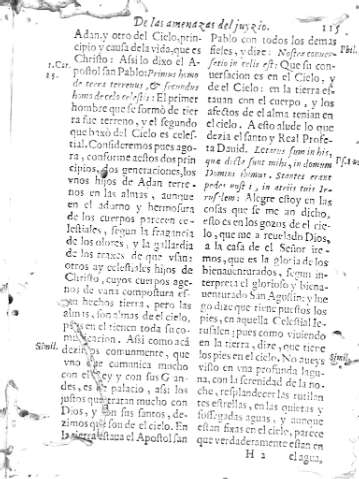 De las amenazas del juyzio.
115
Adan, y otro del Cielo, prin-
cipio y causa de la vida, que es
Christo: Assi lo dixo el A-
postol san Pablo: Primus homo
de terra terrenus, & secundus
homo de celo celestis: El primer
hombre que se formò de tie-
rra fue terreno, y el segundo
que baxò del Cielo es celes-
tial. Consideremos pues ago-
ra, conforme a estos dos prin-
cipios, dos generaciones, los
vnos hijos de Adan terre-
nos en las almas, aunque
en el adorno y hermosura
de los cuerpos parecen ce-
lestiales, segun la fragancia
de los olores, y la gallardia
de los traxes de que vsan:
otros ay celestiales hijos de
Christo, cuyos cuerpos age-
nos de vana compostura es-
hechos tierra, pero las
almas, son almas de el cielo,
en el tienen toda su co-
municacion. Assi como acà
dezimos comunmente, que
vno que comunica mucho
con el Rey y con sus Gran-
des, es de palacio, assi los
justos que tratan mucho con
Dios, y con sus santos, de-
zimos que son de el cielo. En
la tierra estaua el Apostol san
1. Cor.
15.
Simil.
Pablo con todos los demas
fieles, y dize: Nostra conuer-
satio in celis est: Que su con-
uersacion es en el Cielo, y
de el Cielo: en la tierra es-
tauan con el cuerpo, y los
afectos de el alma tenian en
el cielo. A esto alude lo que
dezia el santo y Real Profe-
ta Dauid. Letatus sum in his,
que dicta sunt mihi, in domum
Domini ibimus. Stantes erant
pedes nostri, in atriis tuis Ie-
rusalem: Alegre estoy en las
cosas que se me an dicho,
esto es en los gozos de el cie-
lo, que me a reuelado Dios,
a la casa de el Señor ire-
mos, que es la gloria de los
bienauenturados, segun in-
terpreta el glorioso y biena-
uenturado San Agustin: y lue-
go dize que tiene puestos los
pies, en aquella Celestial Ie-
rusalen; pues como viuiendo
en la tierra, dize, que tiene
los pies en el cielo. No aueys
visto en vna profunda lagu-
na, con la serenidad de la no-
che, resplandecer las rutilan-
tes estrellas, en las quietas y
sossegadas aguas, y aunque
estan fixas en el cielo, parece
que verdaderamente estan en
Phil.
Simil.
H 2
el agua,